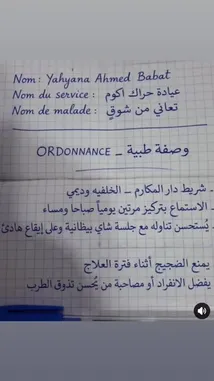 Nom : Yahyana Ahmed Babat
Nom du service : عيادة حراك اكوم
Nom de malade : تعاني من شوقي
ORDONNANCE _ وصفة طبية
- شريط دار المكارم _ الخلفيه وديمي
- الاستماع بتركيز مرتين يوميا صباحا ومساء
- يُستحسن تناوله مع جلسة شاي بيظانية وعلى إيقاع هادئ
يمنع الضجيج أثناء فترة العلاج
يفضل الانفراد أو مصاحبة من يُحسن تذوق الطرب